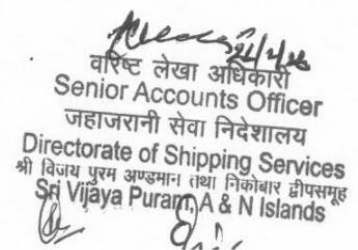 वरिष्ट लेखा अधिकारी
Senior Accounts Officer
जहाजरानी सेवा निदेशालय
Directorate of Shipping Services
श्री विजय पुरम अण्डमान तथा निकोबार द्वीपसमूह
Sri Vijaya Puram, A & N Islands